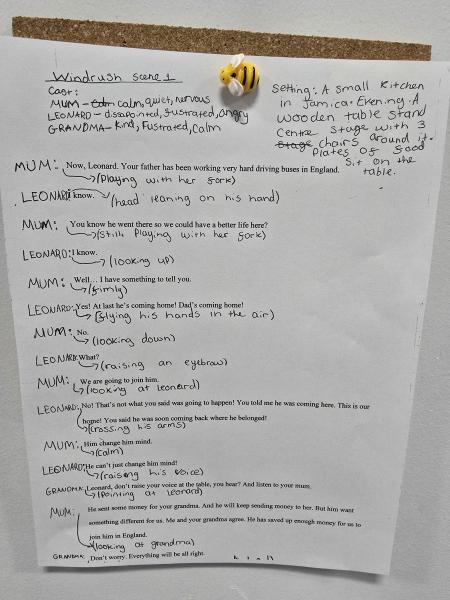 Windrush scene 1
Cast:
MUM - calm, quiet, nervous
LEONARD - dissapointed, fustrated, angry
GRANDMA - kind, Fustrated, calm
Setting: A small kitchen
in Jamica. Evening. A
wooden table stand
Centre stage with 3
Stage chairs around it.
Plates of food
sit on the
table.
MUM: Now, Leonard. Your father has been working very hard driving buses in England.
(Playing with her fork)
LEONARD: I know.
(head leaning on his hand)
MUM: You know he went there so we could have a better life here?
(Still Playing with her fork)
LEONARD: I know.
(looking up)
MUM: Well... I have something to tell you.
(firmly)
LEONARD: Yes! At last he's coming home! Dad's coming home!
(flying his hands in the air)
MUM: No.
(looking down)
LEONARD: What?
(raising an eyebrow)
MUM: We are going to join him.
(looking at leonard)
LEONARD: No! That's not what you said was going to happen! You told me he was coming here. This is our
home! You said he was soon coming back where he belonged!
(crossing his arms)
MUM: Him change him mind.
(calm)
LEONARD: He can't just change him mind!
(raising his voice)
GRANDMA: Leonard, don't raise your voice at the table, you hear? And listen to your mum.
(Pointing at leonard)
MUM: He sent some money for your grandma. And he will keep sending money to her. But him want
something different for us. Me and your grandma agree. He has saved up enough money for us to
join him in England.
(looking at grandma)
GRANDMA: Don't worry. Everything will be all right.